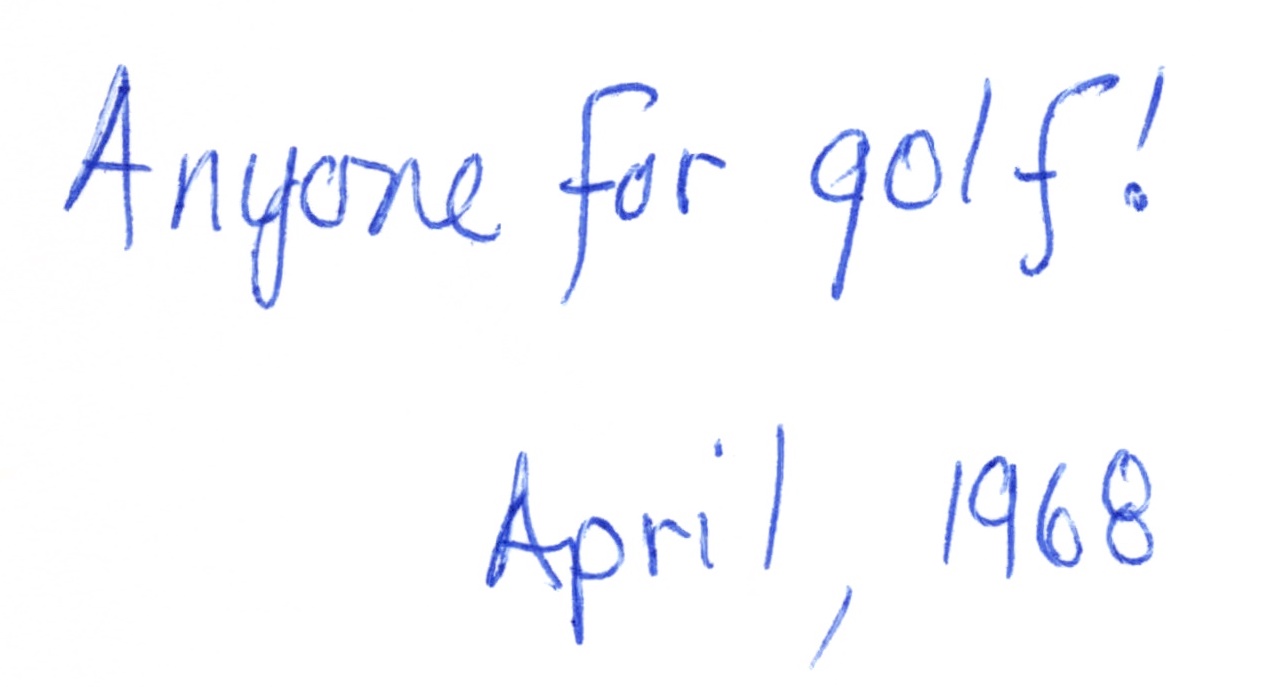 Anyone for golf!
April, 1968